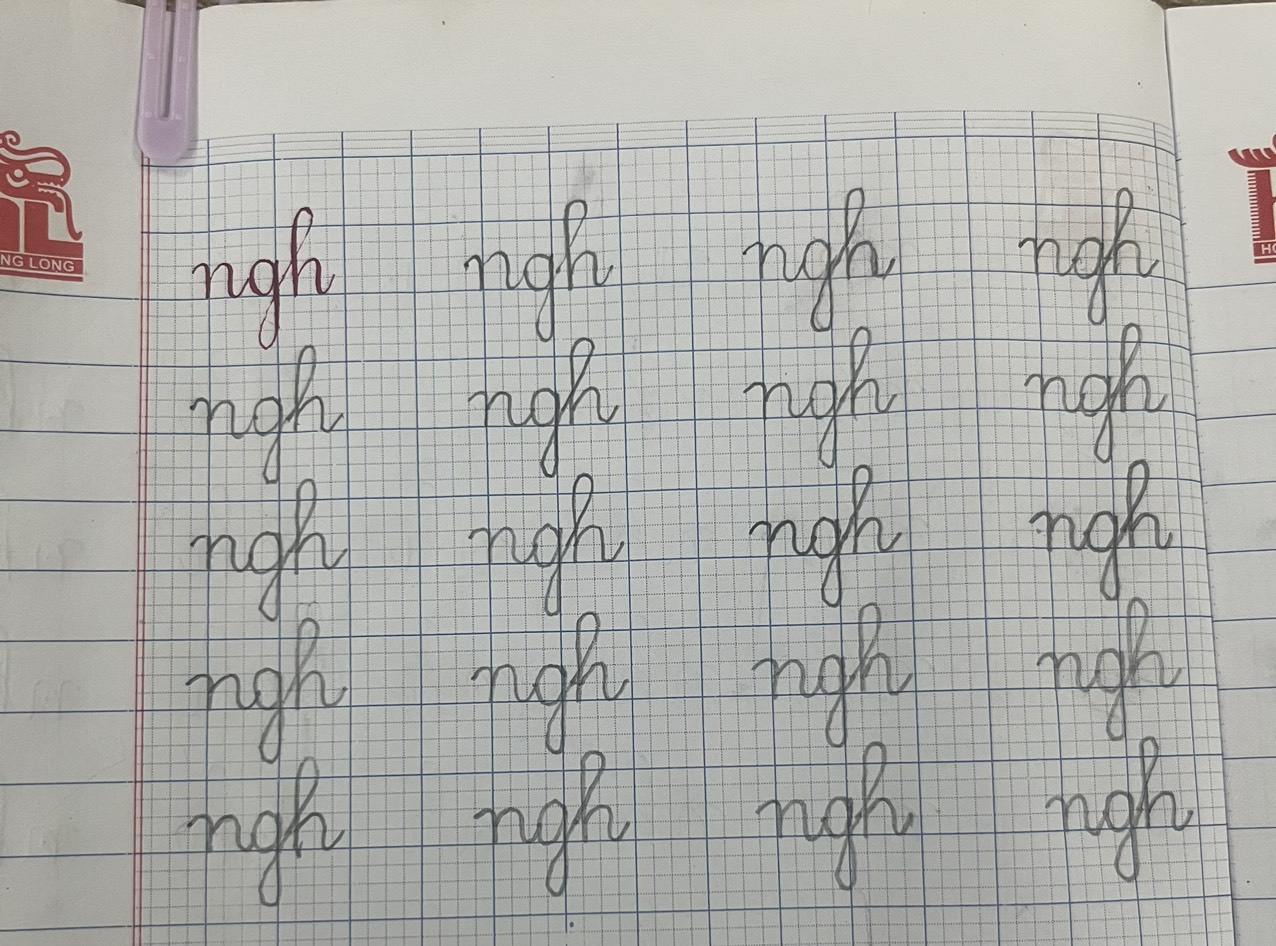 ngh ngh ngh ngh
ngh ngh ngh ngh
ngh ngh ngh ngh
ngh ngh ngh ngh
ngh ngh ngh ngh
NG LONG
HO